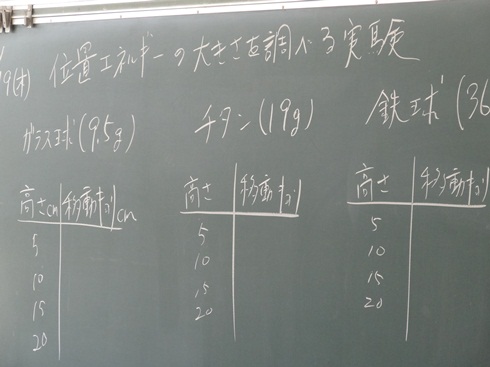 19(木) 位置エネルギーの大きさを調べる実験
ガラス球(9.5g)
高さcm 移動キョリcm
5
10
15
20
チタン(19g)
高さ 移動キョリ
5
10
15
20
鉄球(36
高さ 移動キョリ
5
10
15
20